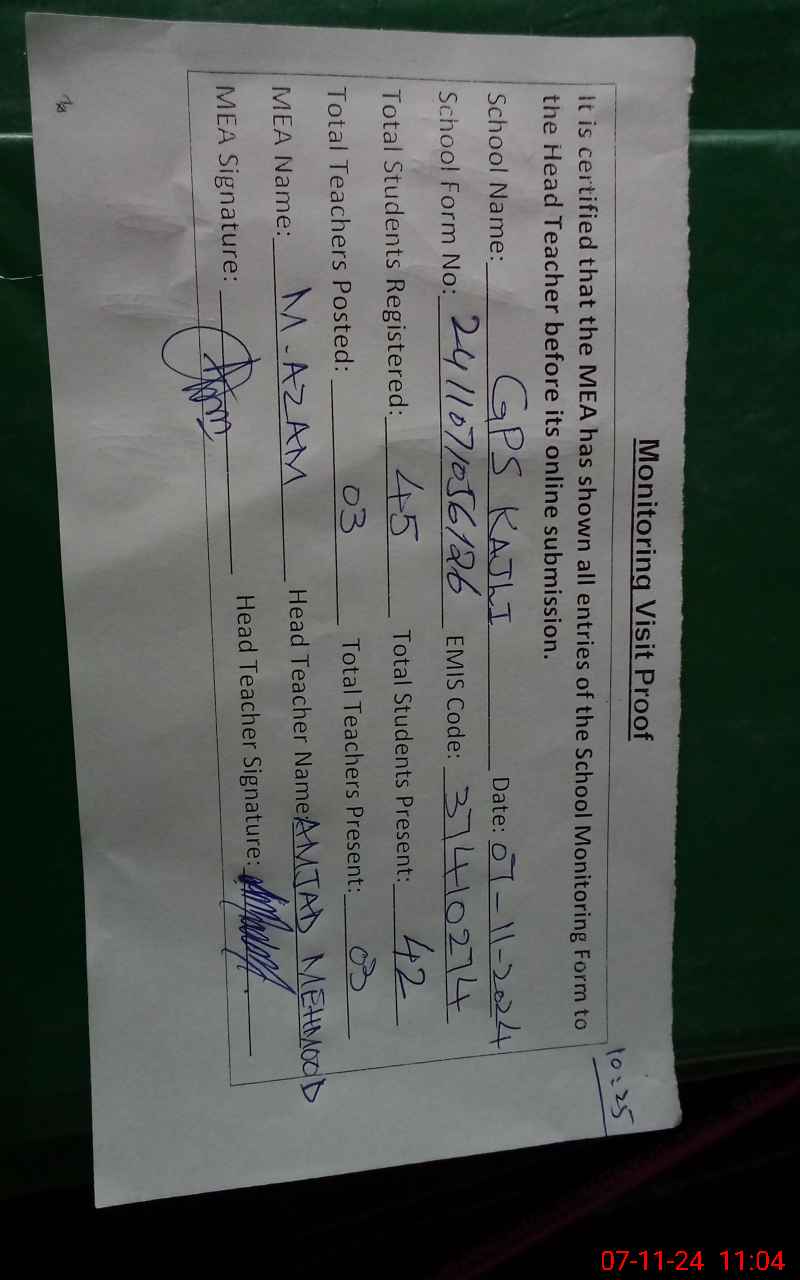 Monitoring Visit Proof
10:25
It is certified that the MEA has shown all entries of the School Monitoring Form to
the Head Teacher before its online submission.
School Name: GPS KAJLI Date: 07-11-2024
School Form No: 241107/056126 EMIS Code: 37410274
Total Students Registered: 45 Total Students Present: 42
Total Teachers Posted: 03 Total Teachers Present: 03
MEA Name: M-AZAM Head Teacher Name: AMJAD MEHMOOD
MEA Signature: Head Teacher Signature:
07-11-24 11:04